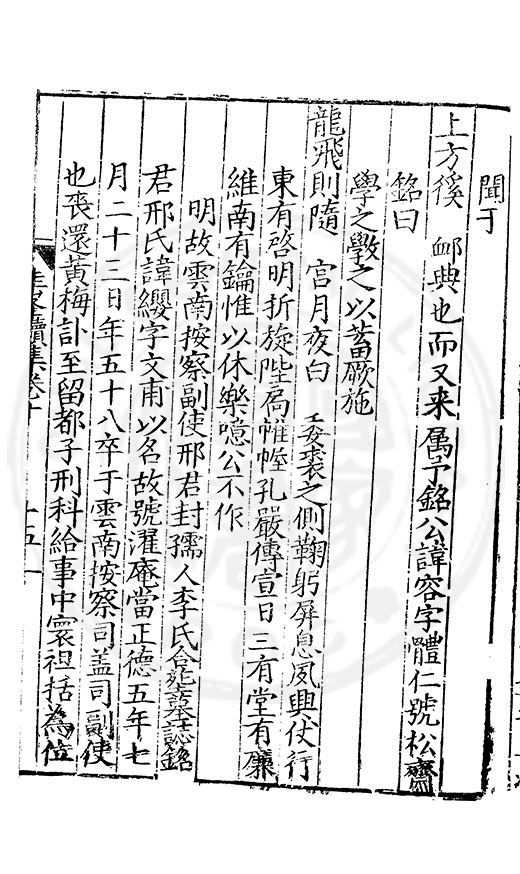 聞丁
上方徯 䘏典也而又来屬予銘公諱容字體仁號松齋
銘曰
學之斆之以蓄厥施
龍飛則隨 宫月夜白 委裘之側鞠躬屏息夙興仗行
東有啓明折旋陛戺帷幄孔嚴傳宣日三有堂有廉
維南有鑰惟以休樂噫公不作
明故雲南按察副使邢君封孺人李氏合塟墓誌銘
君邢氏諱纓字文甫以名故號濯庵當正德五年七
月二十三日年五十八卒于雲南按察司盖司副使
也喪還黄梅訃至留都子刑科給事中寰袒括為位
續集卷十
十五